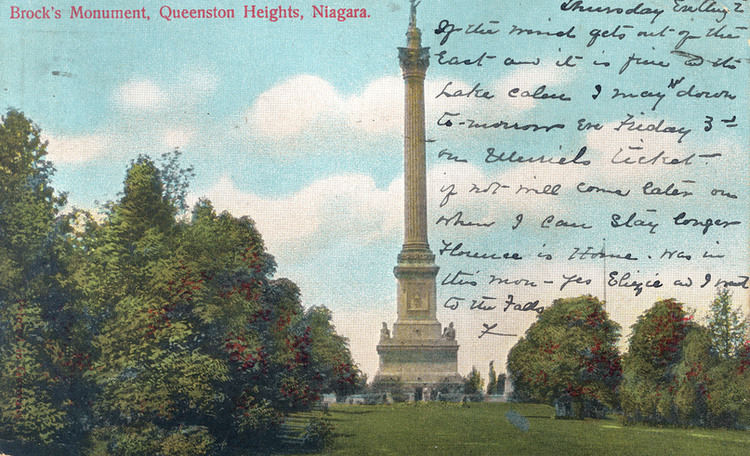 Brock's Monument, Queenston Heights, Niagara.
Thursday
If the wind gets out of the
East and it is fine and the
Lake calm I may down
to-morrow eve Friday 3rd
on Muriel's ticket -
if not will come later on
when I can stay longer
Florence is Home. Was in
this mon - yes Elizie and I went
to the Falls